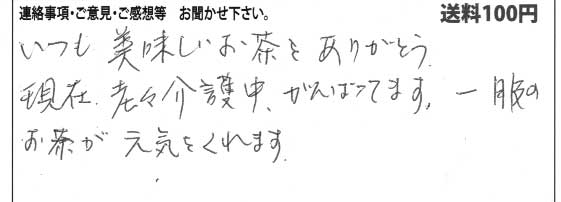 連絡事項・ご意見・ご感想等　お聞かせ下さい。 送料100円
いつも 美味しいお茶を ありがとう.
現在、老々介護中、がんばってます。 一服の
お茶が 元気をくれます.